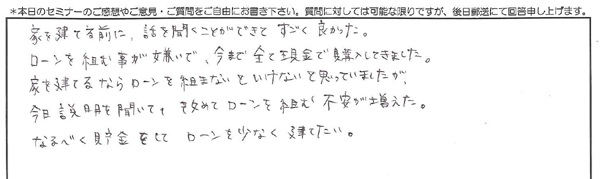 *本日のセミナーのご感想やご意見・ご質問をご自由にお書き下さい。質問に対しては可能な限りですが、後日郵送にて回答申し上げます。
家を建てる前に、話を聞くことができて すごく良かった。
ローンを組む事が嫌いで、今まで全て現金で購入してきました。
家を建てるならローンを組まないといけないと思っていましたが、
今日説明を聞いて、改めてローンを組む 不安が増えた。
なるべく貯金をして ローンを少なく 建てたい。